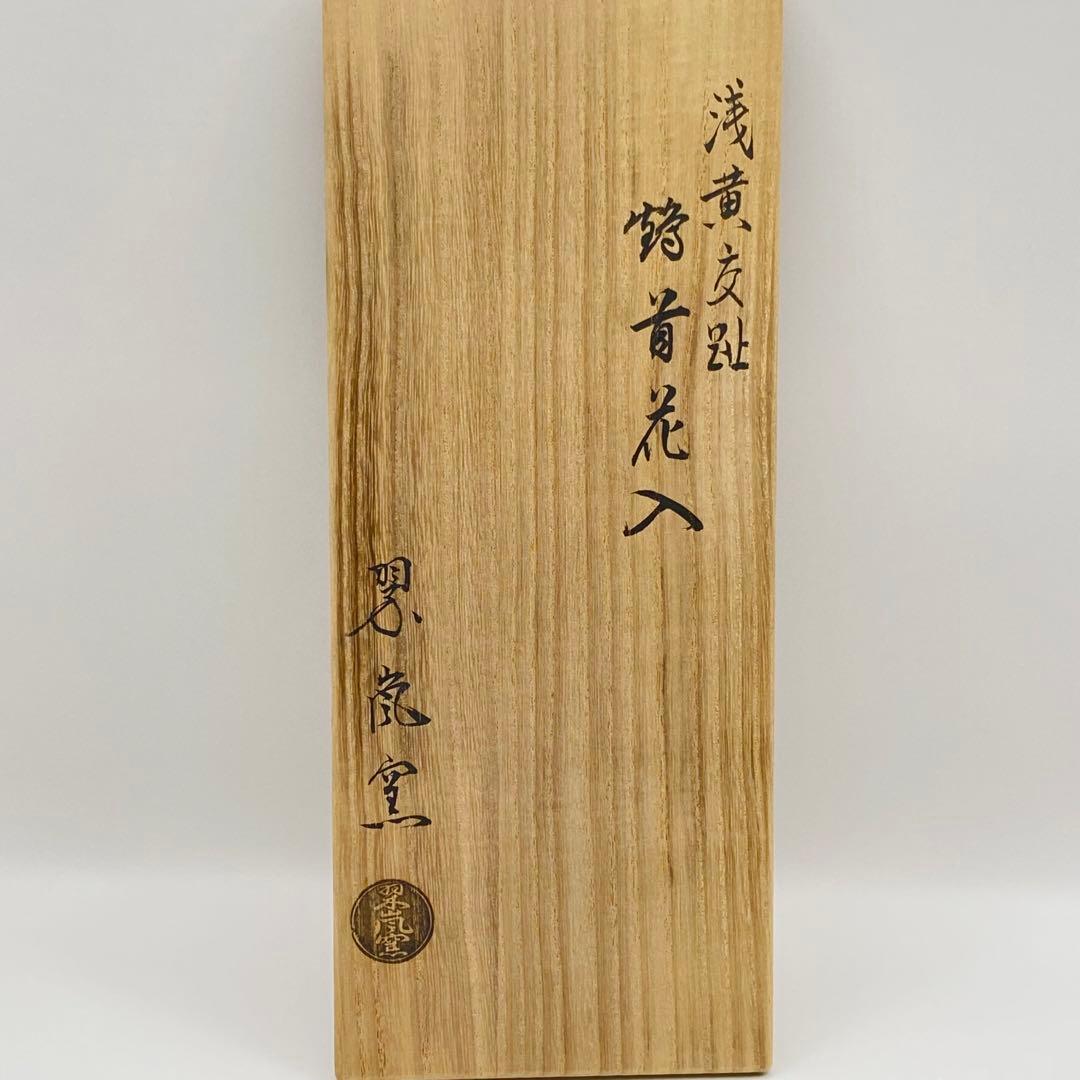 浅黄交趾
鶴首花入
翠嵐窯
翠嵐窯